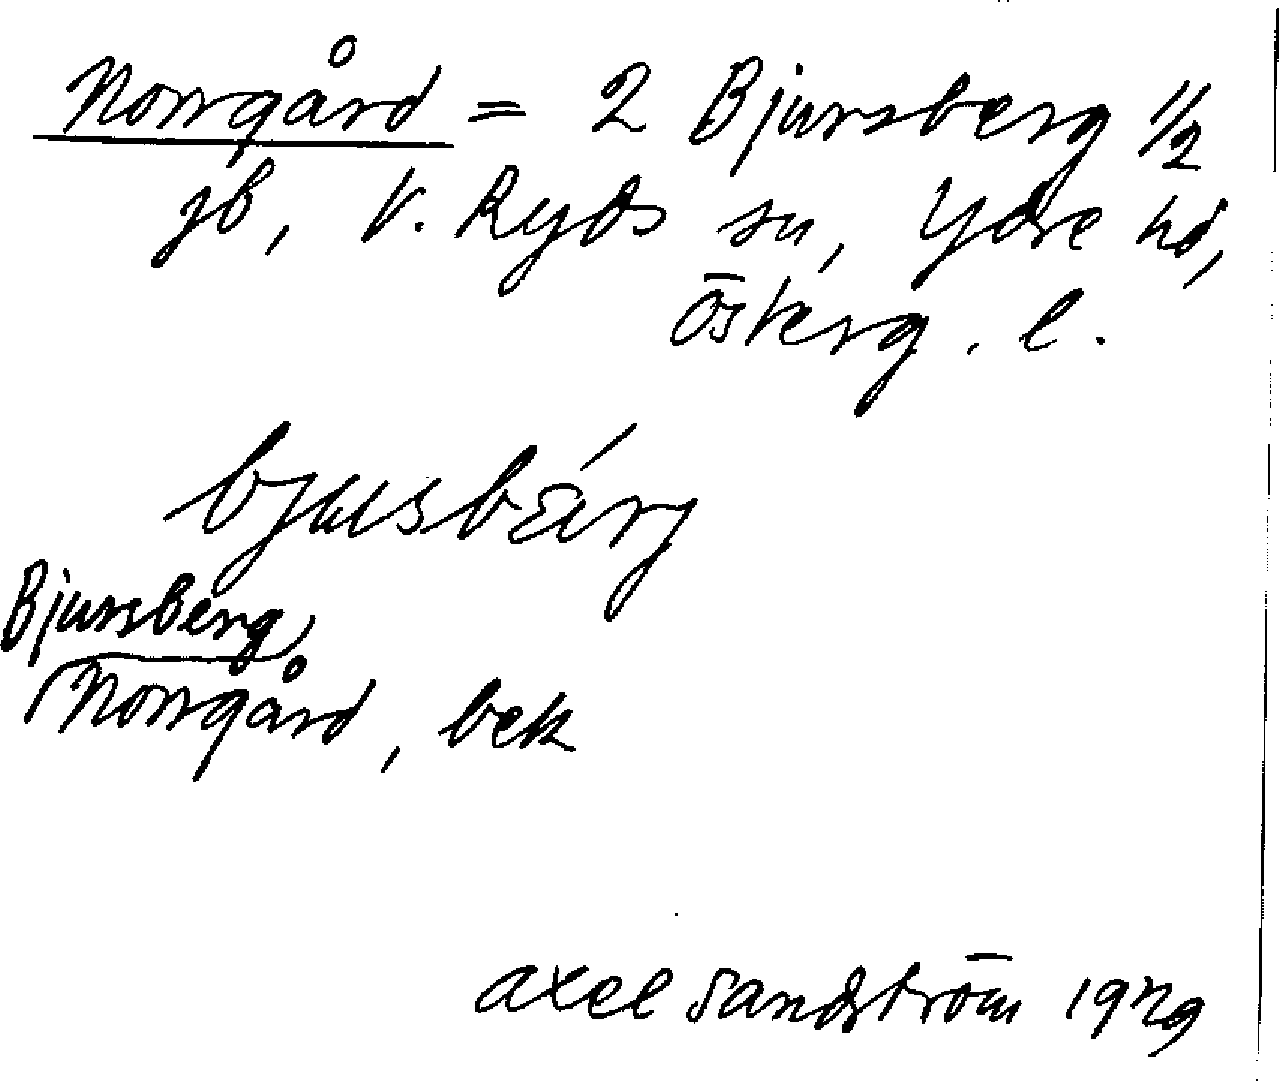 Norrgård = 2 Bjursberg 1/2
jb, V. Ryds sn, Ydre hd,
Österg. l.
Bjursberg
Norrgård, bek
Axel Sandström 1929